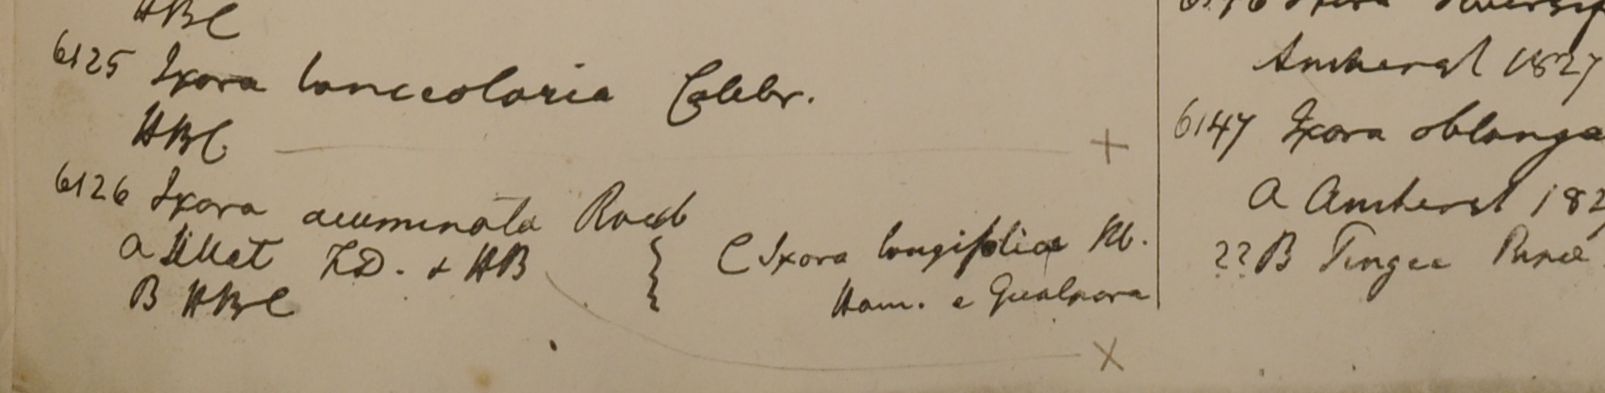 HBC
6125 Ixora lanceolaria Colebr.
HBC
6126 Ixora acuminata Roxb
a Sillet F.D. & HB
B HBC
C Ixora longifolia Hb.
Ham. e Gualpara
Amherst 1827
6147 Ixora oblonga
a Amherst 182
??B Tingea